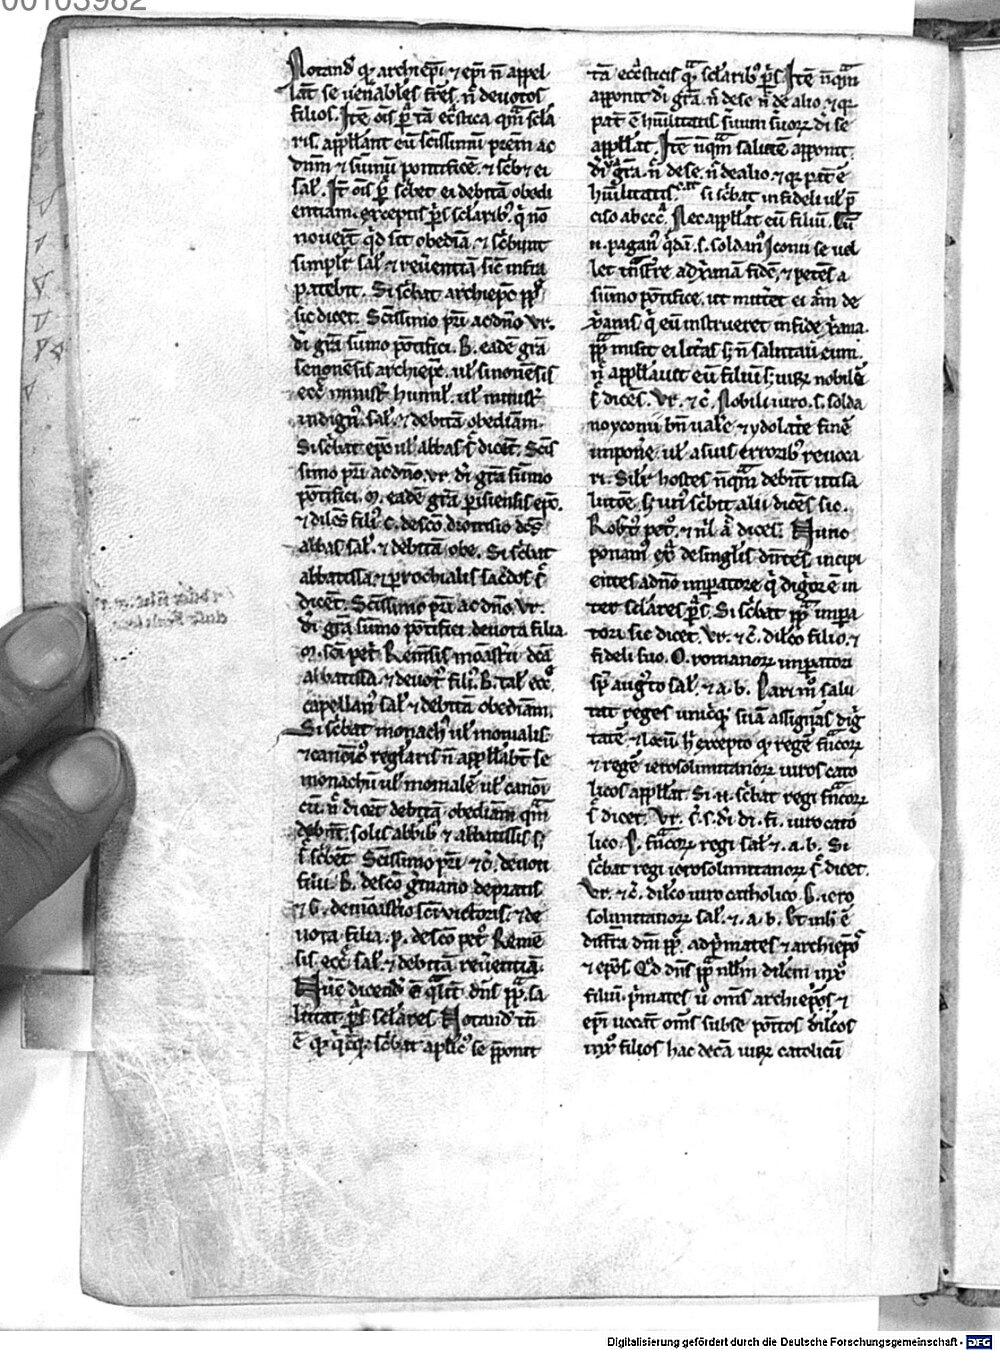 00103982
Notand qr archiep̄i ⁊ ep̄i n̄ appel
lāt se uen̄abiles fr̄es. n̄ deuotos
filios. Itē oīs p̄ tā eccl̄astica qm̄ scła
ris. appłłant eū scīssimū p̄rem ac
dn̄m ⁊ sūmū pontificē. ⁊ sc̄b̄t ei
sał. It̄ oīs p̄ sc̄bet ei debitā obedi
entiam. exceptis p̄s sclaribꝰ. q̄ nō
nouer̄t qd̄ sit obedīa. ⁊ sc̄bunt
simplr̄ sał. ⁊ reuēentiā sic infra
patebit. Si sc̄bat archiepc̄ pp̄
sic dicet. Scīssimo pr̄i ac dn̄o .Vr.
di gr̄a sūmo pōtifici. B. eadē gr̄a
senonēsis archiepc̄. uł sinonēsis
ecc̄ minist̄ humił. uł minist̄
indignꝰ. sał. ⁊ debitā obedīam.
Si sc̄bat epc̄ uł abbas s̄ dicet̄. Scīs
simo pr̄i ac dn̄o .vr. di gr̄a sūmo
pōtifici. M. eadē gr̄a p̄isiensis epc̄.
⁊ dilc̄s filiꝰ C. de sc̄o dionisio dc̄s
abbas sał. ⁊ debitā obe. Si sc̄bat
abbatissa. ⁊ p̄rochialis sac̄dos s̄
dicēt. Scīssimo pr̄i ac dn̄o .Vr.
di gr̄a sūmo pōtifici. deuota filia
M. sc̄i pet̄ Remēsis moāst̄ii dc̄a
abbatissa. ⁊ deuotꝰ filiꝰ. B. tał. ecc̄
capellanꝰ sał ⁊ debitā obedīam.
Si sc̄bat monachꝰ uł monialis
⁊ canōicꝰ regłaris n̄ appłłabt̄ se
monachū uł monialē uł canoi
cū. n̄ dicēt debitā obedīam qm̄
debn̄t. solis abb̄ibꝰ ⁊ abbatissis s;
s̄ sc̄bēt Scīssimo pr̄i ⁊ c̄. deuoti
filii. B. de sc̄o gm̄ano de pratis
⁊ G. de mōast̄io sc̄i victoris. ⁊ de
uota filia. P. de sc̄o pet̄ Remē
sis. ecc̄ sał. ⁊ debitā reuēentiā.
Nūc dicend̄ ē qłit̄ dn̄s pp̄. sa
lutat p̄s sclares Notand tn̄
ē qr qc̄q; sc̄bat aplic̄ se p̄ponit
tā ecc̄sticis q̄ sclaribꝰ p̄s Itē n̄qm̄
apponit di gr̄a. n̄ de se n̄ de alio. ⁊ qr
pat̄ ē hūilitatis suum suorꝝ di se
appłłat. Itē n̄qm̄ salutē apponit.
di gr̄a. n̄ de se. n̄ de alio. ⁊ qr pat̄ ē
hūilitatis si sc̄bat infideli uł p̄
ciso ab ecc̄. Nec appłłat eū filiū. Cū
n. paganꝰ qdā .s. soldanꝰ Iconii se uel
let tn̄sfr̄e ad xp̄ianā fidē. ⁊ petēs a
sūmo pōtifice. ut mitt̄et ei aīm de
xp̄anis q̄ eū instrueret in fide xp̄ana.
pp̄ misit ei lit̄as s; n̄ salutauit eum.
n̄ appłłauit eū filiū s; uirꝝ nobilē
s̄ dicēs. Vr. ⁊ c̄. Nobili uiro. s. solda
no yconii bn̄ uale ⁊ ydolat̄e finē
imponē. uł a suis erroribꝰ reuoca
ri. Silr̄ hostes n̄qm̄ debn̄t uti sa
lutōe. s; unꝰ sc̄bit alii dicēs sic.
Robt̄ꝰ pet̄. ⁊ nl̄ ā dicet. Nunc
ponam̄ ex̄ de singłis dn̄tes. incipi
entes a dn̄o imp̄atore. q̄ dignior ē in
ter sclares p̄s. Si sc̄bat pp̄ imp̄a
tori sic dicet. Vr. ⁊ c̄. dilc̄o filio. ⁊
fideli suo. O. romanorꝝ imp̄atori
sp̄ augꝰto sał. ⁊ a. b. Pari mō salu
tat reges unicq; suā assignās dig
tatē. ⁊ locū. h̄ excepto qr regē fr̄acorꝝ
⁊ regē ierosolimitanorꝝ uiros cato
licos appłłat. Si .n. sc̄bat regi fr̄acorꝝ
s̄ dicet. Vr. s̄. s. di di. fi. uiro cato
lico. P. fr̄acorꝝ regi sał ⁊. a. b. Si
sc̄bat regi ierosolimitanorꝝ s̄ dicet.
Vr. ⁊ c̄. dilc̄o uiro catholico. B. iero
solimitanorꝝ sał. ⁊. a. b. Et mlꝰ ē
diffr̄a dm̄ pp̄. ad p̄mates ⁊ archiepō
⁊ epōs. Qd̄ dn̄s pp̄ nłłm dilcm̄ in xp̄o
filiū. p̄mates ū om̄s archiepōs ⁊
ep̄i uocāt om̄s sub se pōitos dilc̄os
in xp̄o filios hac de cā uirꝝ catolicū
Digitalisierung gefördert durch die Deutsche Forschungsgemeinschaft - DFG